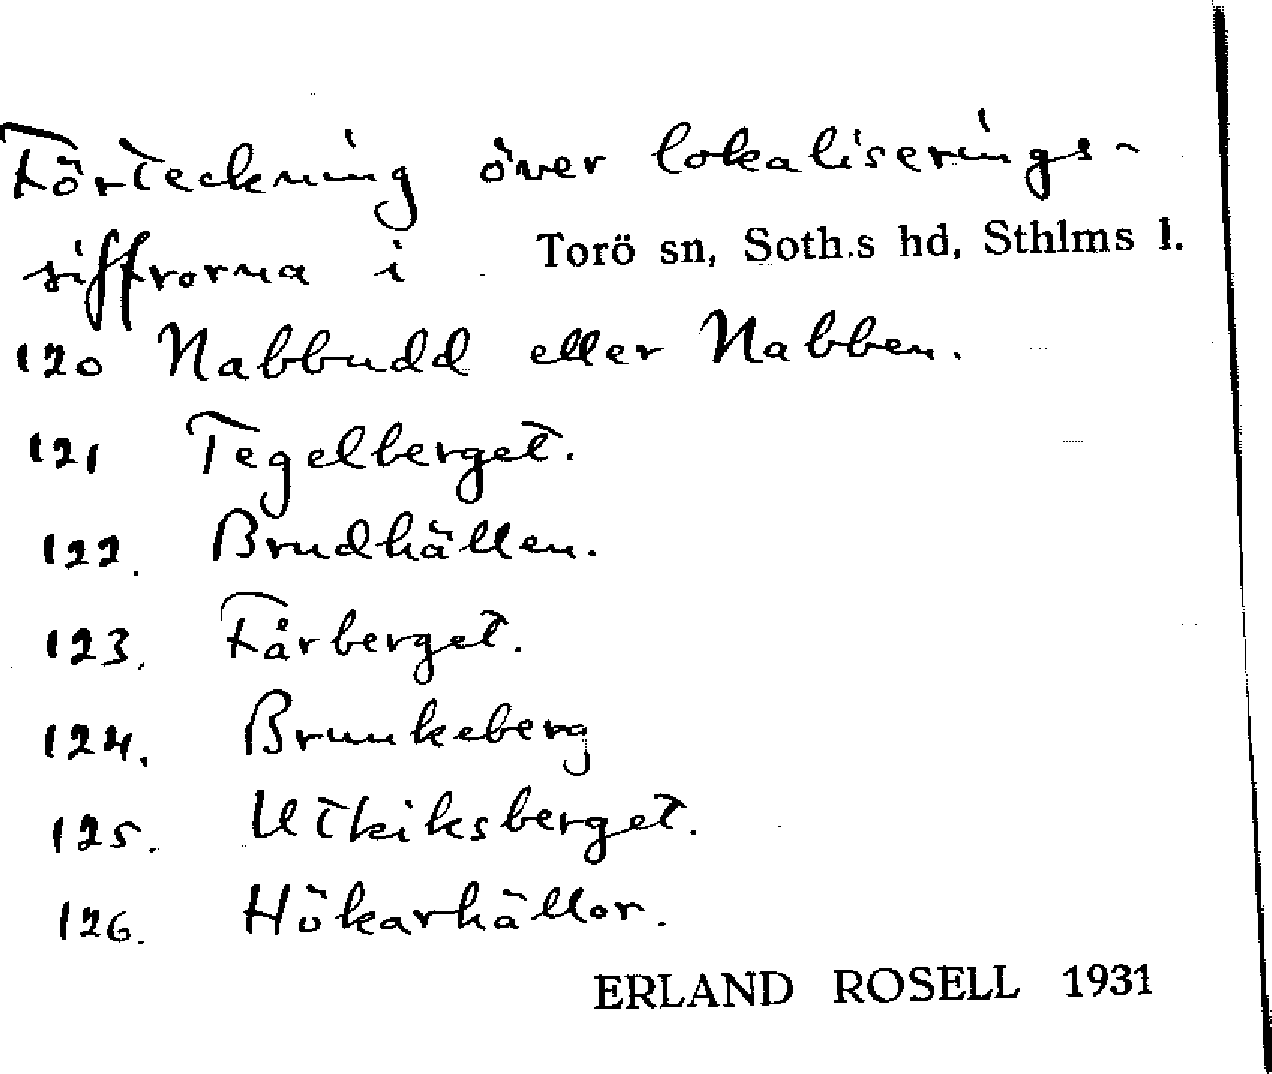 Förteckning över lokaliserings-
siffrorna i Torö sn, Soth.s hd, Sthlms l.
120 Nabbudd eller Nabben.
121 Tegelberget.
122. Brudhällen.
123. Fårberget.
124. Brunkeberg
125. Utkiksberget.
126. Hökarhällor.
ERLAND ROSELL 1931